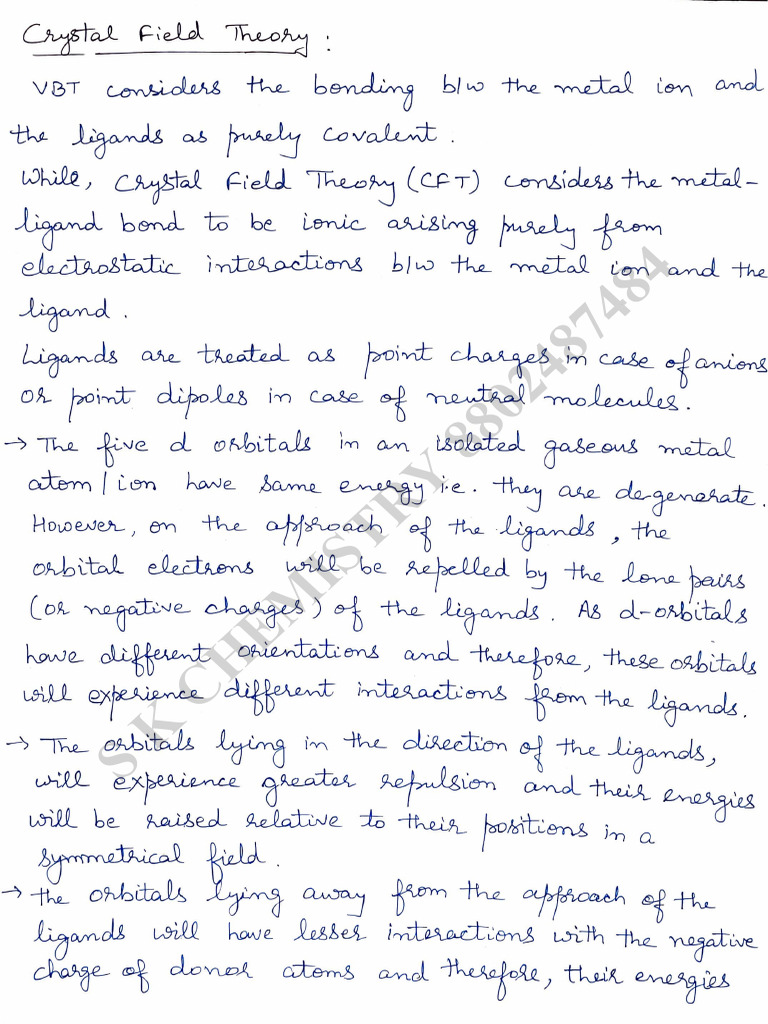 Crystal Field Theory :
VBT considers the bonding b/w the metal ion and
the ligands as purely covalent.
While, Crystal Field Theory (CFT) considers the metal-
ligand bond to be ionic arising purely from
electrostatic interactions b/w the metal ion and the
ligand.
Ligands are treated as point charges in case of anions
or point dipoles in case of neutral molecules.
→ The five d orbitals in an isolated gaseous metal
atom/ion have same energy i.e. they are degenerate.
However, on the approach of the ligands, the
orbital electrons will be repelled by the lone pairs
(or negative charges) of the ligands. As d-orbitals
have different orientations and therefore, these orbitals
will experience different interactions from the ligands.
→ The orbitals lying in the direction of the ligands,
will experience greater repulsion and their energies
will be raised relative to their positions in a
symmetrical field.
→ the orbitals lying away from the approach of the
ligands will have lesser interactions with the negative
charge of donor atoms and therefore, their energies
S K CHEMISTRY 8802487484